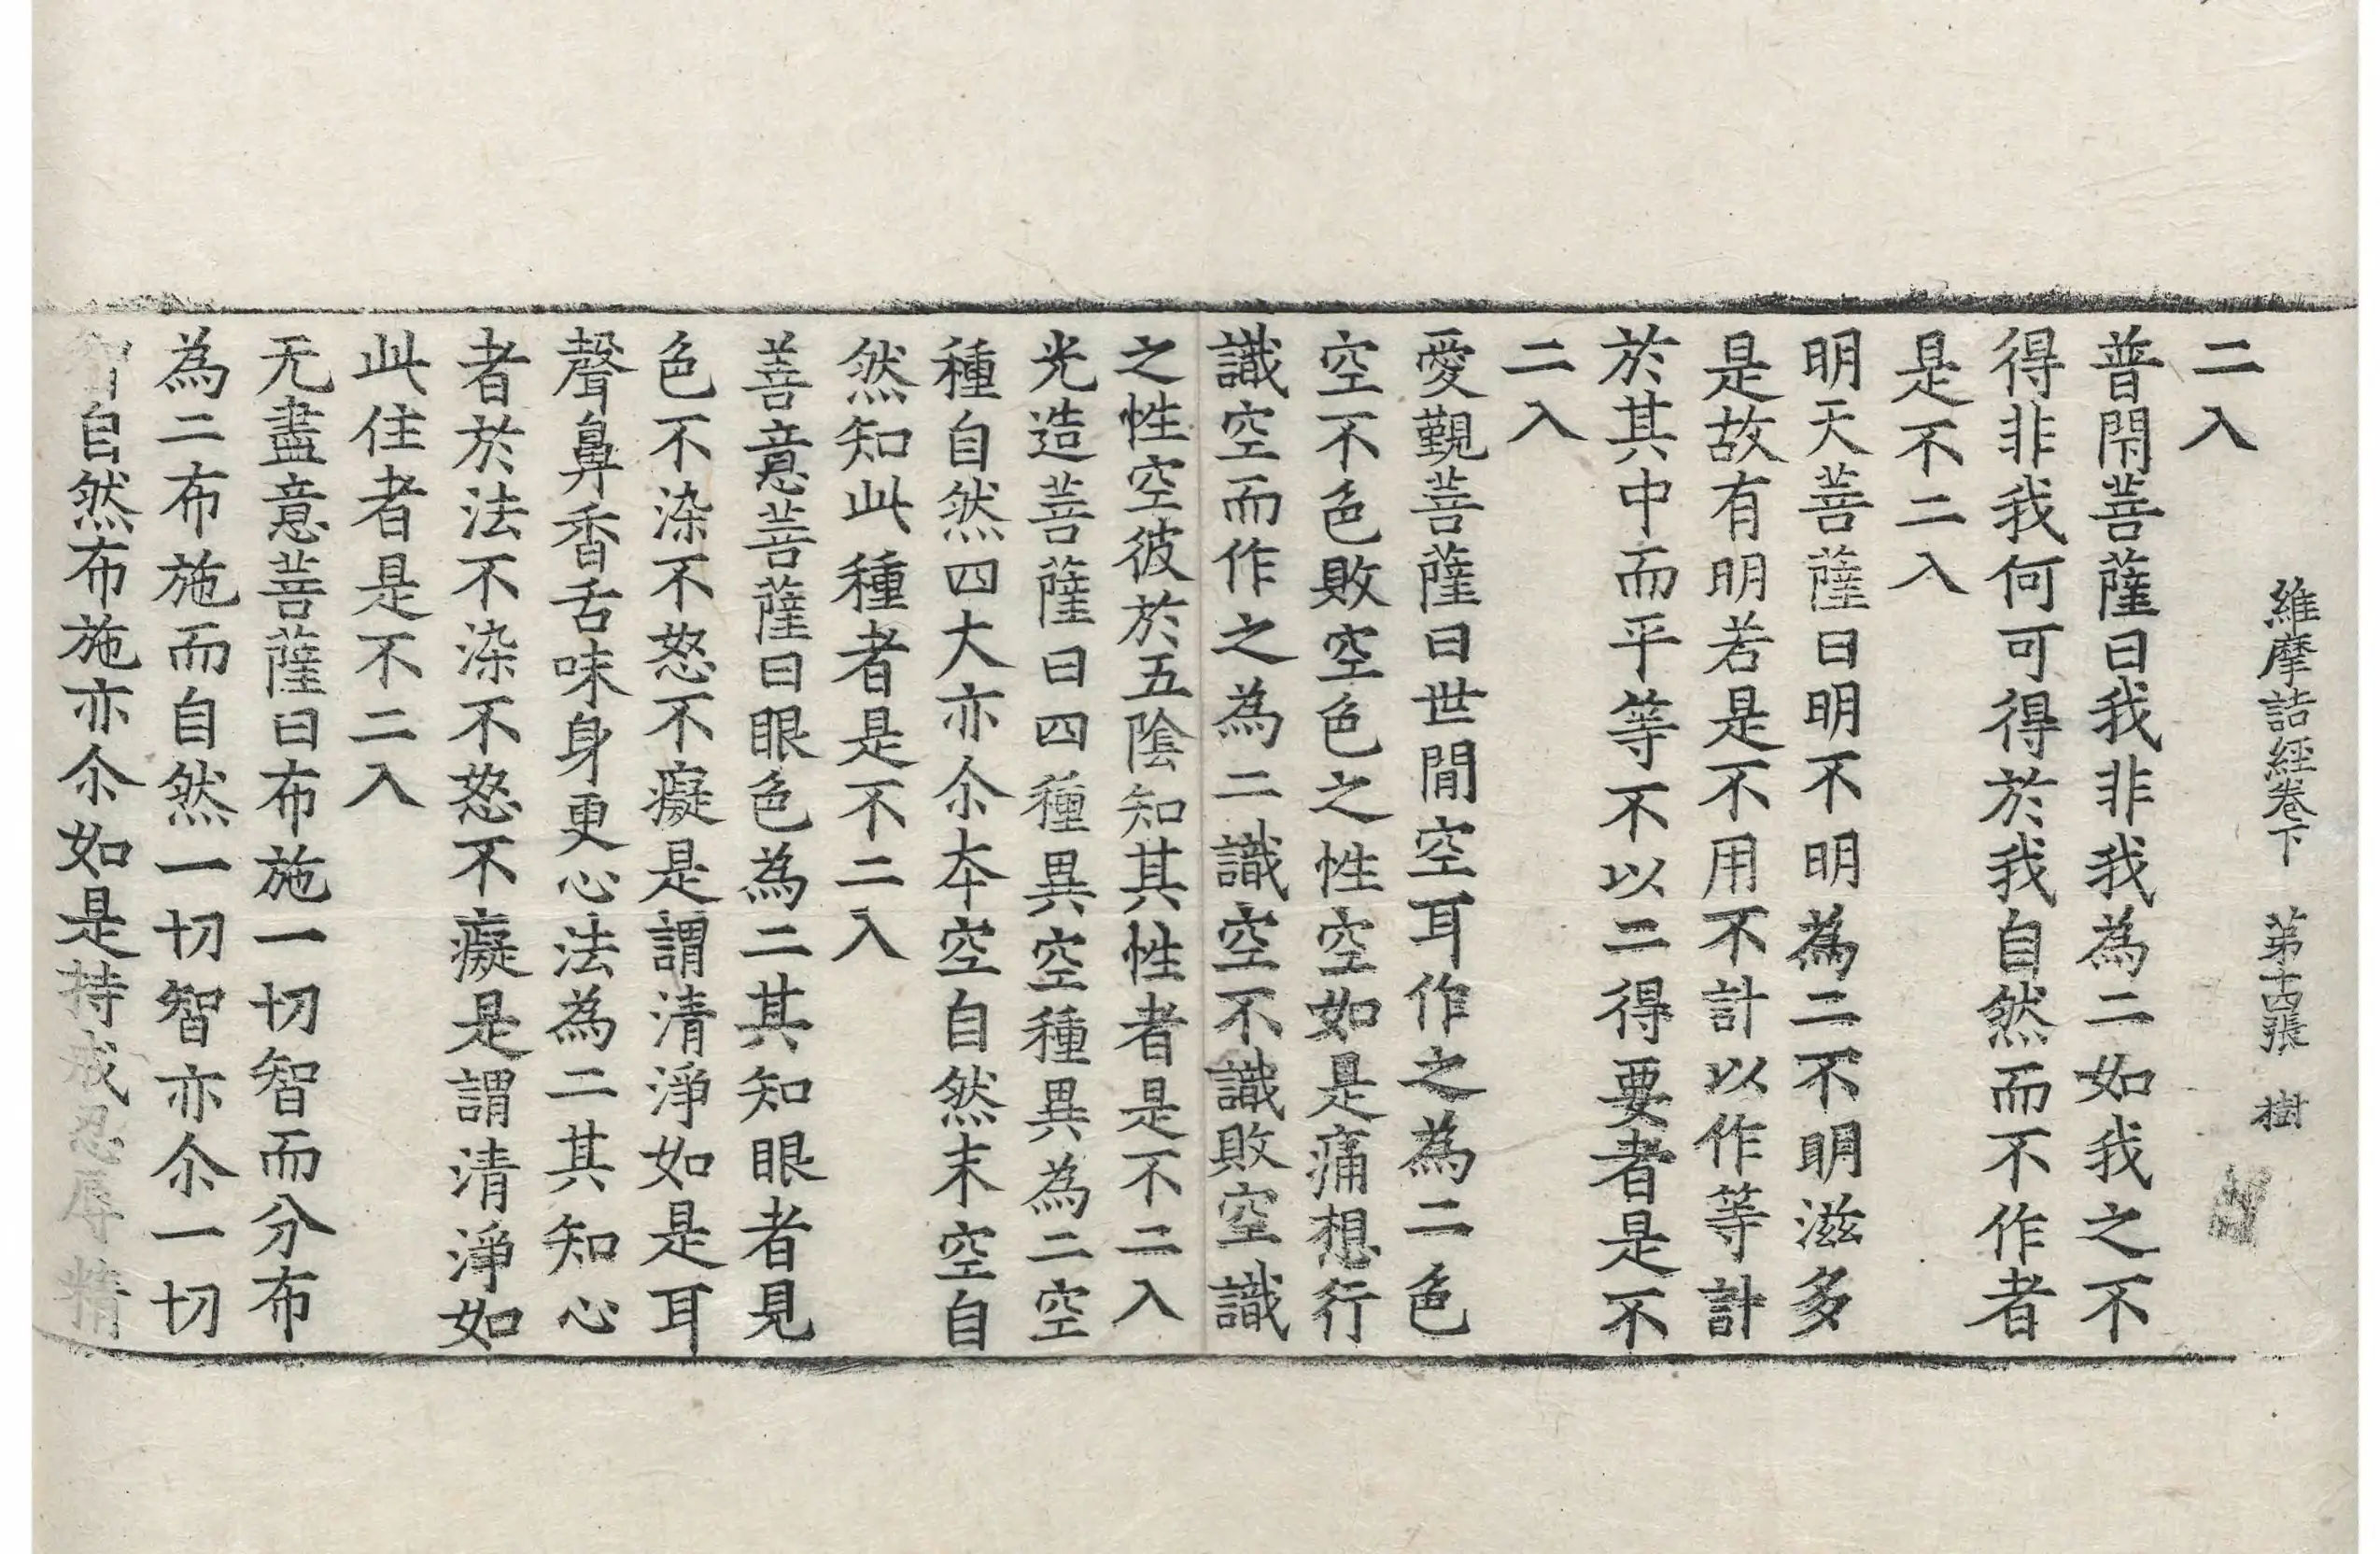 維摩詰經卷下　第十四張　樹
二入
普閇菩薩曰我非我為二如我之不
得非我何可得於我自然而不作者
是不二入
明天菩薩曰明不明為二不明滋多
是故有明若是不用不計以作等計
於其中而平等不以二得要者是不
二入
愛觐菩薩曰世間空耳作之為二色
空不色敗空色之性空如是痛想行
識空而作之為二識空不識敗空識
之性空彼於五陰知其性者是不二入
光造菩薩曰四種異空種異為二空
種自然四大亦尒夲空自然末空自
然知此種者是不二入
善意菩薩曰眼色為二其知眼者見
色不染不怒不癡是謂清淨如是耳
聲鼻香舌味身更心法為二其知心
者於法不染不怒不癡是謂清淨如
此住者是不二入
无盡意菩薩曰布施一切智而分布
為二布施而自然一切智亦尒一切
智自然布施亦尒如是持戒忍辱精